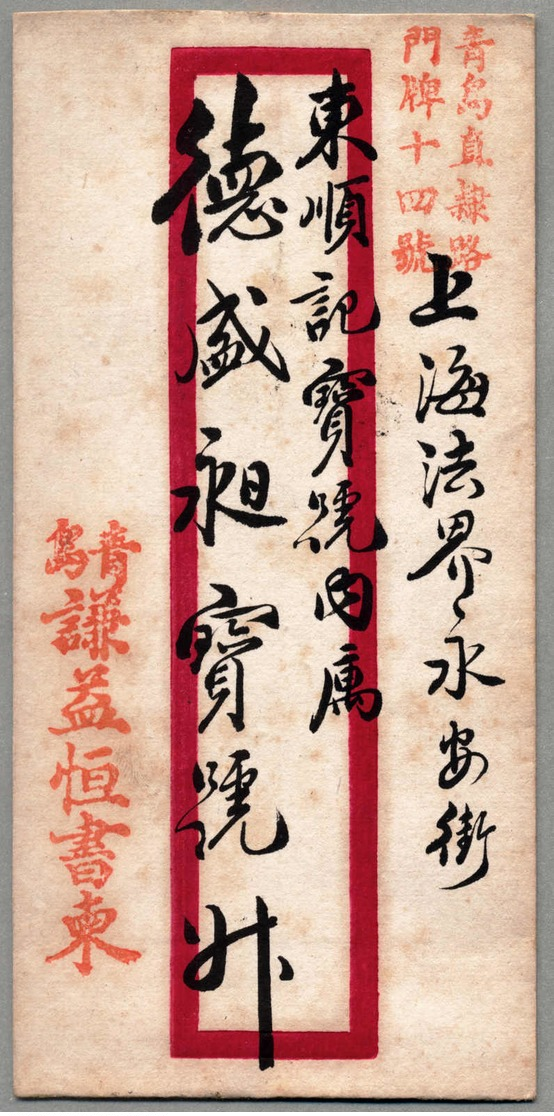 青島直隸路
門牌十四號
上海法界永安街
東順記寶號內
德盛昶寶號升
青島
謙益恒書柬